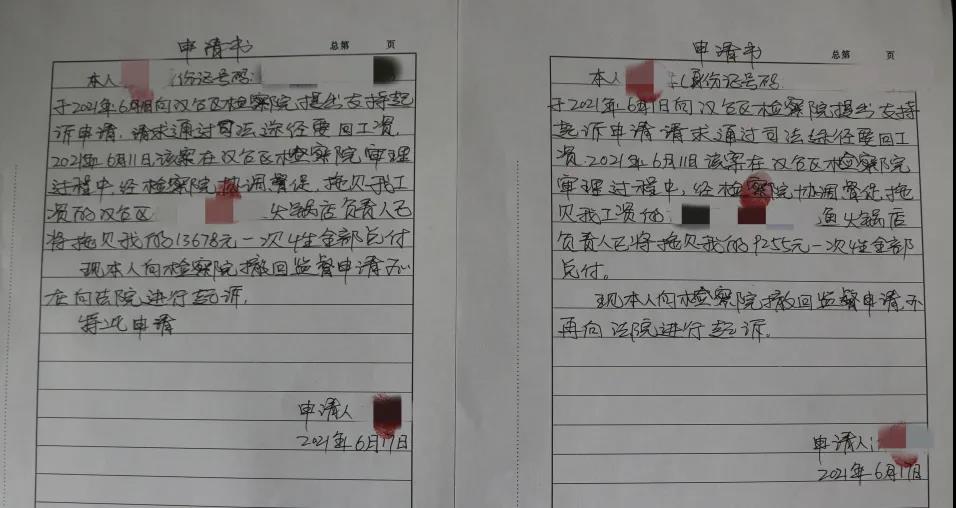 申请书
总第 页
本人 份证号码:
于2021年6月1日向汉台区检察院提出支持起
诉申请,请求通过司法途经要回工资,
2021年6月11日该案在汉台区检察院审理
过程中,经检察院协调督促,拖欠我工
资的汉台区 火锅店负责人已
将拖欠我的13678元一次性全部兑付
现本人向检察院撤回监督申请不
在向法院进行起诉.
特此申请
申请人
2021年6月17日
申请书
总第 页
本人 身份证号码
于2021年6月1日向汉台区检察院提出支持
起诉申请请求通过司法途经要回工
资.2021年6月11日该案在汉台区检察院
审理过程中,经检察院协调督促拖
欠我工资的 渔火锅店
负责人已将拖欠我的9255元一次性全部
兑付.
现本人向检察院撤回监督申请.不
再向法院进行起诉.
申请人:
2021年6月17日